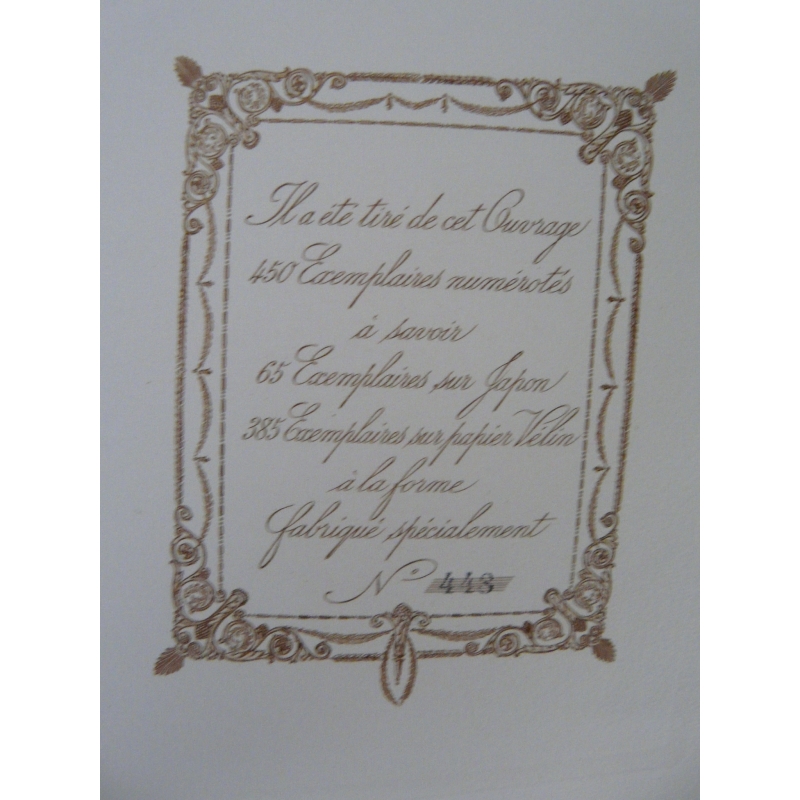 Il a été tiré de cet Ouvrage
450 Exemplaires numérotés
à savoir
65 Exemplaires sur Japon
385 Exemplaires sur papier Vélin
à la forme
fabriqué spécialement
N° 443